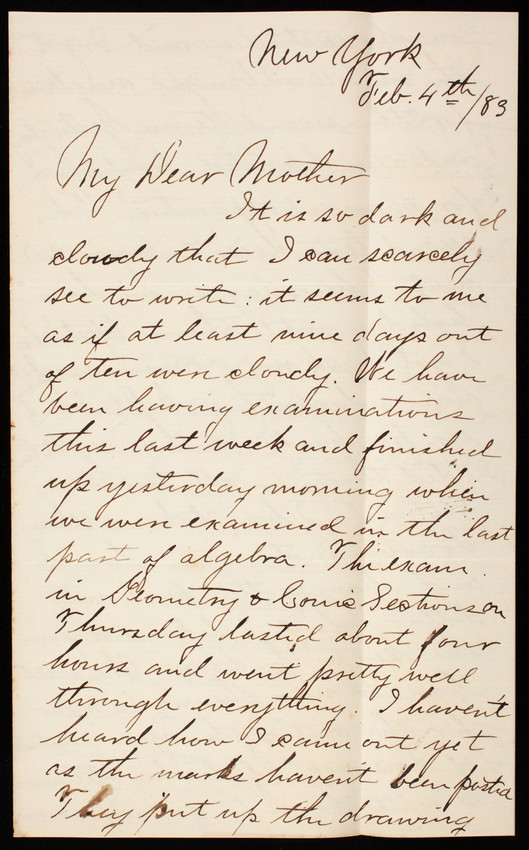 New York
Feb. 4th/83
My Dear Mother
It is so dark and
cloudy that I can scarcely
see to write: it seems to me
as if at least nine days out
of ten were cloudy. We have
been having examinations
this last week and finished
up yesterday morning when
we were examined in the last
part of algebra. The exam.
in Geometry & Conic Sections on
Thursday lasted about four
hours and went pretty well
through everything. I haven't
heard how I came out yet
as the marks haven't been posted
They put up the drawing